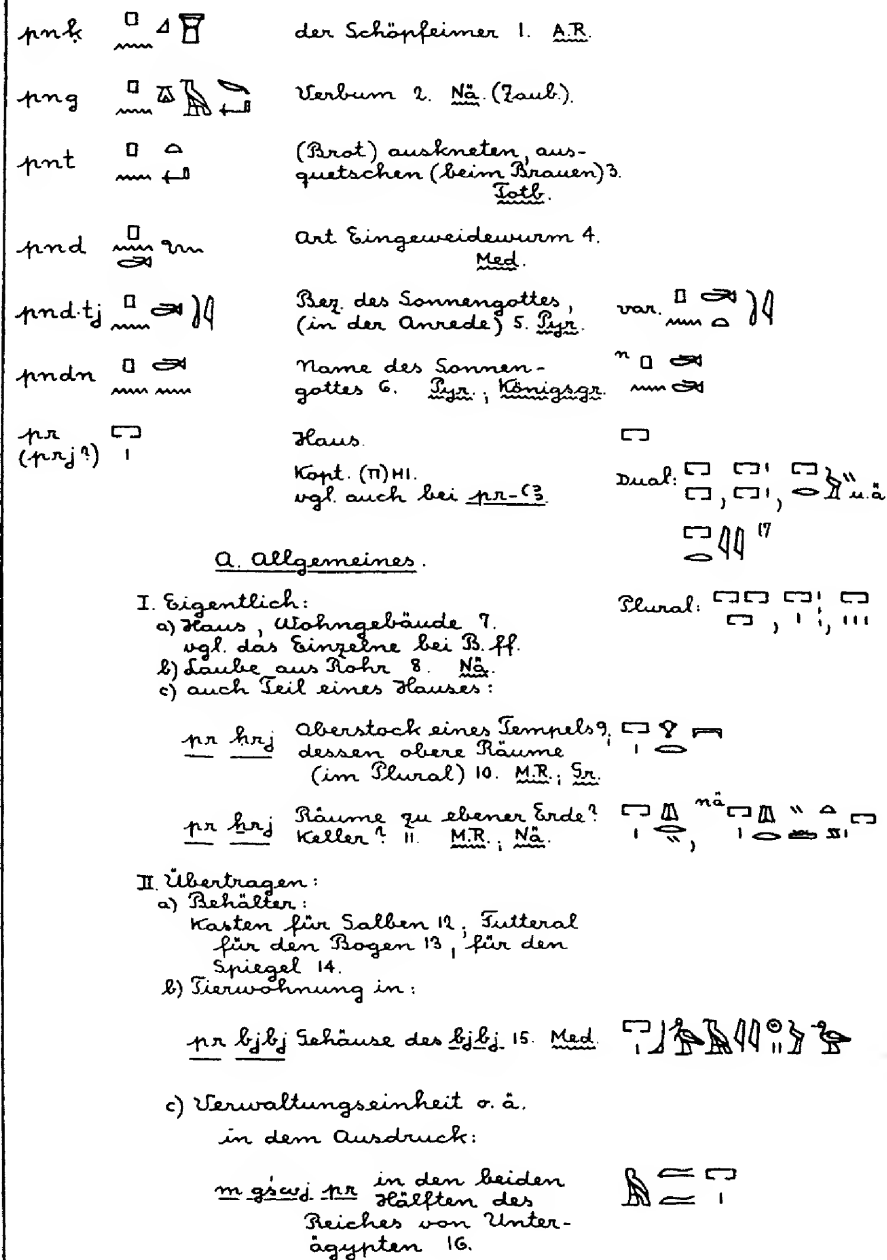 pnḳ der Schöpfeimer 1. A.R.
png Verbum 2. Nä. (Zaub.).
pnt (Brot) auskneten, aus-
quetschen (beim Brauen) 3.
Totb.
pnd Art Eingeweidewurm 4.
Med.
pnd·tj Bez. des Sonnengottes,
(in der Anrede) 5. Pyr. var.
pndn Name des Sonnen-
gottes 6. Pyr.; Königsgr. n
pr Haus.
(prj?)
Kopt. (Π)ΗΙ.
vgl. auch bei pr-ꜥꜣ. Dual: , , u.ä
17
A. Allgemeines.
I. Eigentlich: Plural: , ,
a) Haus, Wohngebäude 7.
vgl. das Einzelne bei B. ff.
b) Laube aus Rohr 8. Nä.
c) auch Teil eines Hauses:
pr ḥrj Oberstock eines Tempels 9,
dessen obere Räume
(im Plural) 10. M.R.; Gr.
pr ẖrj Räume zu ebener Erde? , nä
Keller? 11. M.R.; Nä.
II. Übertragen:
a) Behälter:
Kasten für Salben 12; Futteral
für den Bogen 13, für den
Spiegel 14.
b) Tierwohnung in:
pr bjbj Gehäuse des bjbj 15. Med.
c) Verwaltungseinheit o. ä.
in dem Ausdruck:
m gśwj pr in den beiden
Hälften des
Reiches von Unter-
ägypten 16.